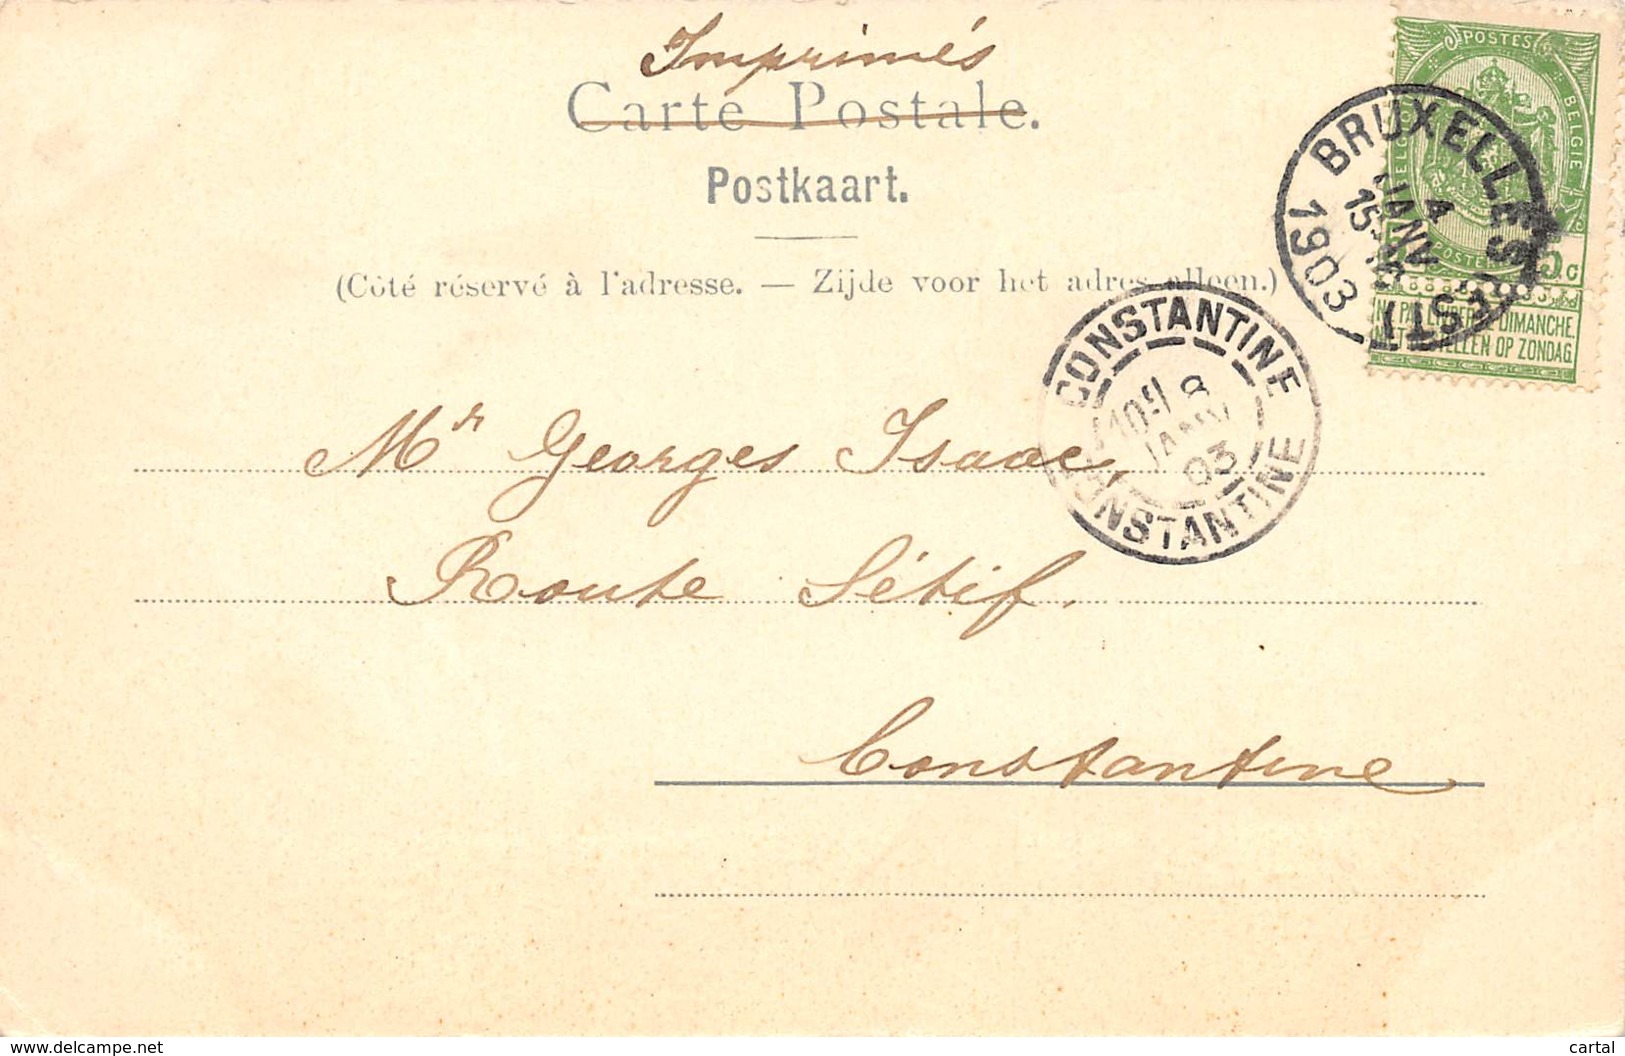 Imprimés
Carte Postale.
Postkaart.
(Côté réservé à l'adresse. — Zijde voor het adres alleen.)
POSTES
BELGIE
BRUXELLES (EST)
4
JANV
1903
5 c
DIMANCHE
OP ZONDAG
CONSTANTINE
8
JANV
03
CONSTANTINE
Mr Georges Isaac,
Route Sétif.
Constantine
www.delcampe.net
cartal